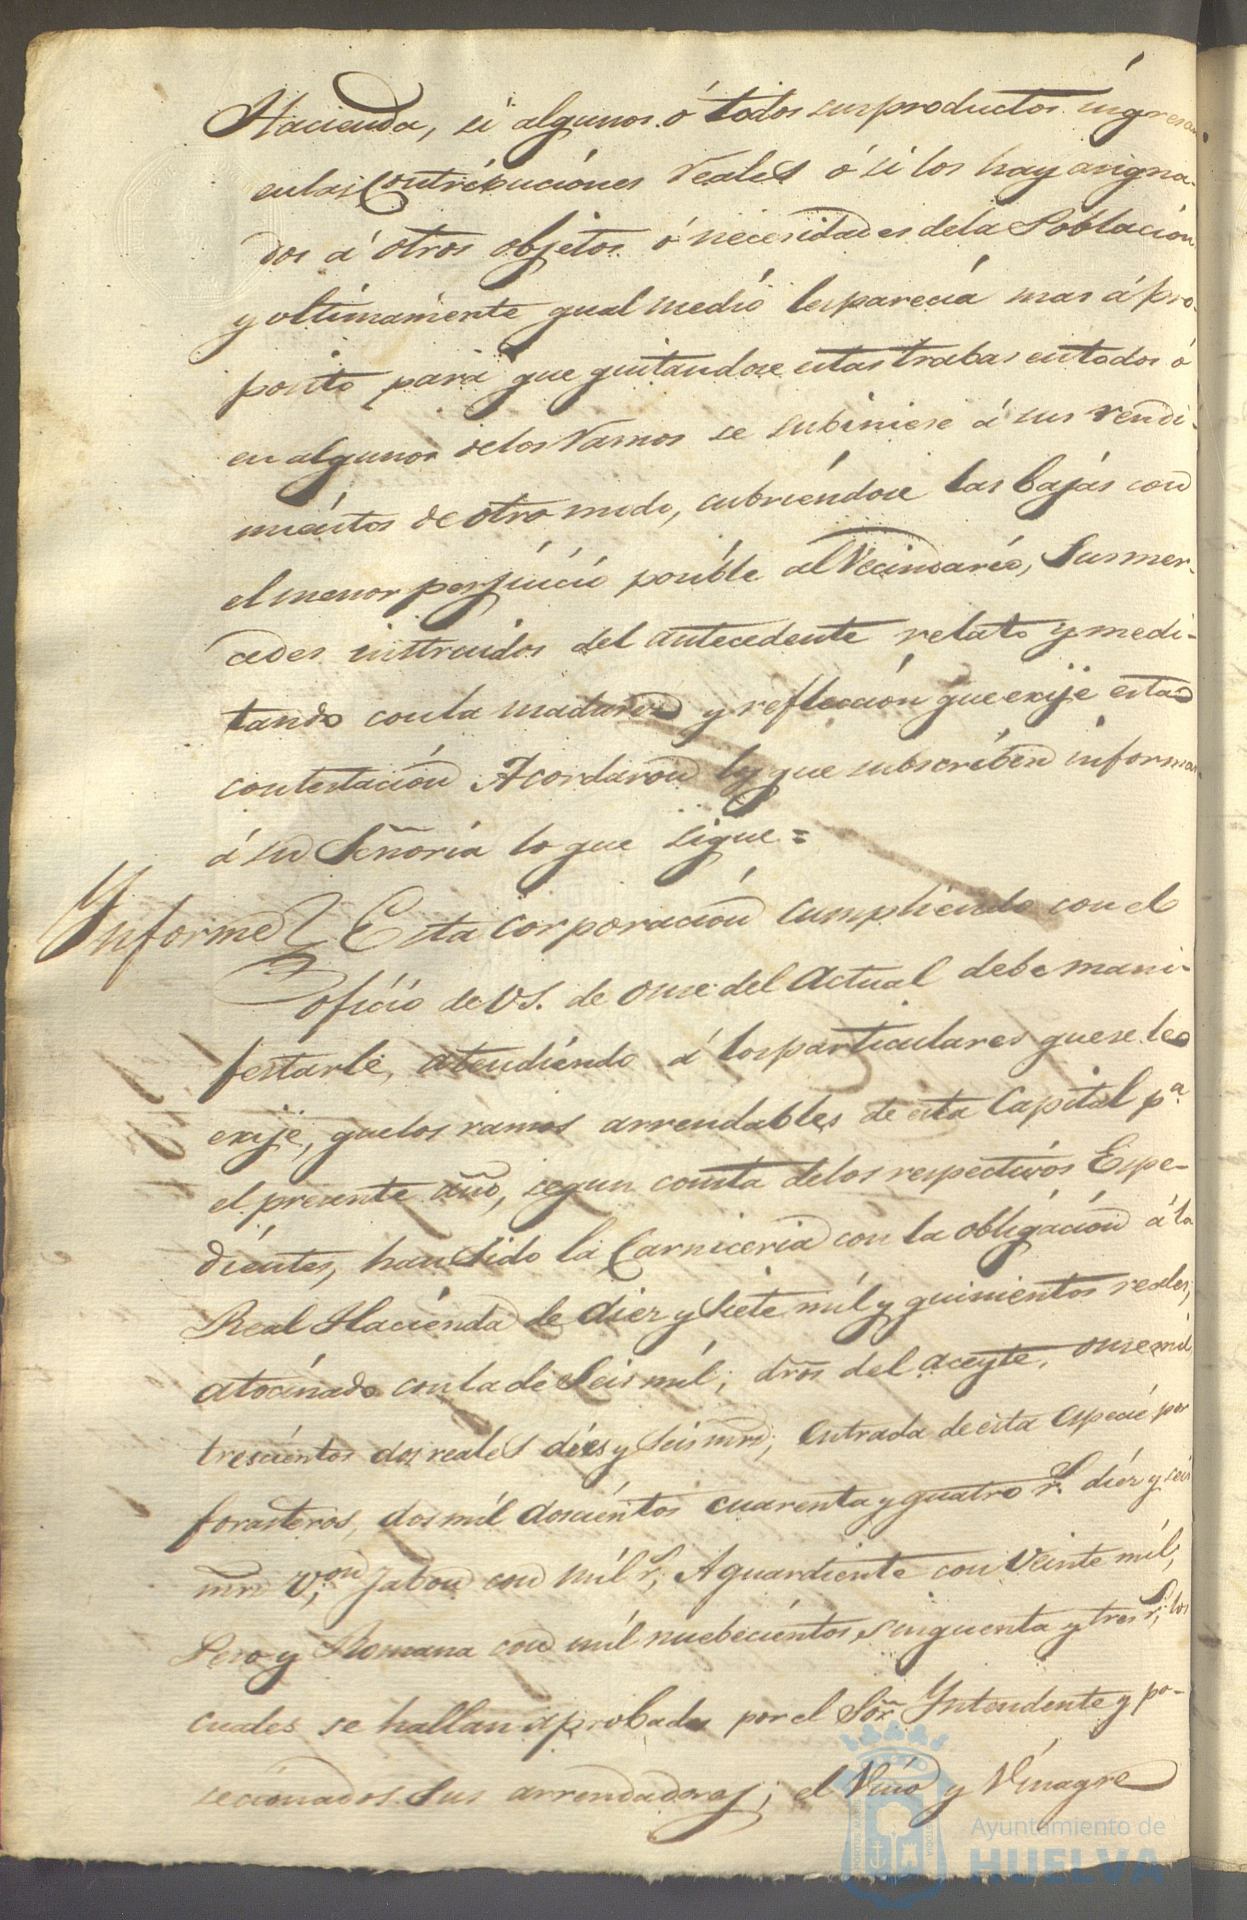 Hacienda, si algunos ó todos sus productos ingresan
en las Contribuciones reales ó si los hay asigna-
dos á otros objetos ó necesidades de la Poblacion
y ultimamente qual medio les parecia mas á pro-
posito para que quitandose estas trabas en todos ó
en algunos de los ramos se subiniese á sus rendi-
mientos de otro modo, cubriendose las bajas con
el menor perjuicio posible al Vecindario, Sus mer-
cedes instruidos del antecedente relato y medi-
tando con la madurez y reflección que exije esta
contestacion Acordaron los que subscriben informar
á su Señoria lo que sigue =
Informe Esta corporacion cumpliendo con el
oficio de V.S. de onse del Actual debe mani-
festarle, atendiendo á los particulares que se le
exije, que los ramos arrendables de esta Capital pª.
el presente año, segun consta de los respectivos Espe-
dientes, han sido la Carniceria con la obligacion á la
Real Hacienda de diez y siete mil y quinientos reales;
atocinado con la de Seis mil; dros del aceyte, onse mil
trescientos dos reales dies y seis mrs; entrada de esta especie por
forasteros, dos mil doscientos cuarenta y quatro rs. diez y seis
mrs Von; Jabon con mil rs; Aguardiente con Veinte mil;
Peso y Romana con mil nuebecientos sinquenta y tres rs; los
cuales se hallan aprobados por el Sor Yntendente y po-
secionados sus arrendadores; el Vino y Vinagre
Ayuntamiento de
HUELVA